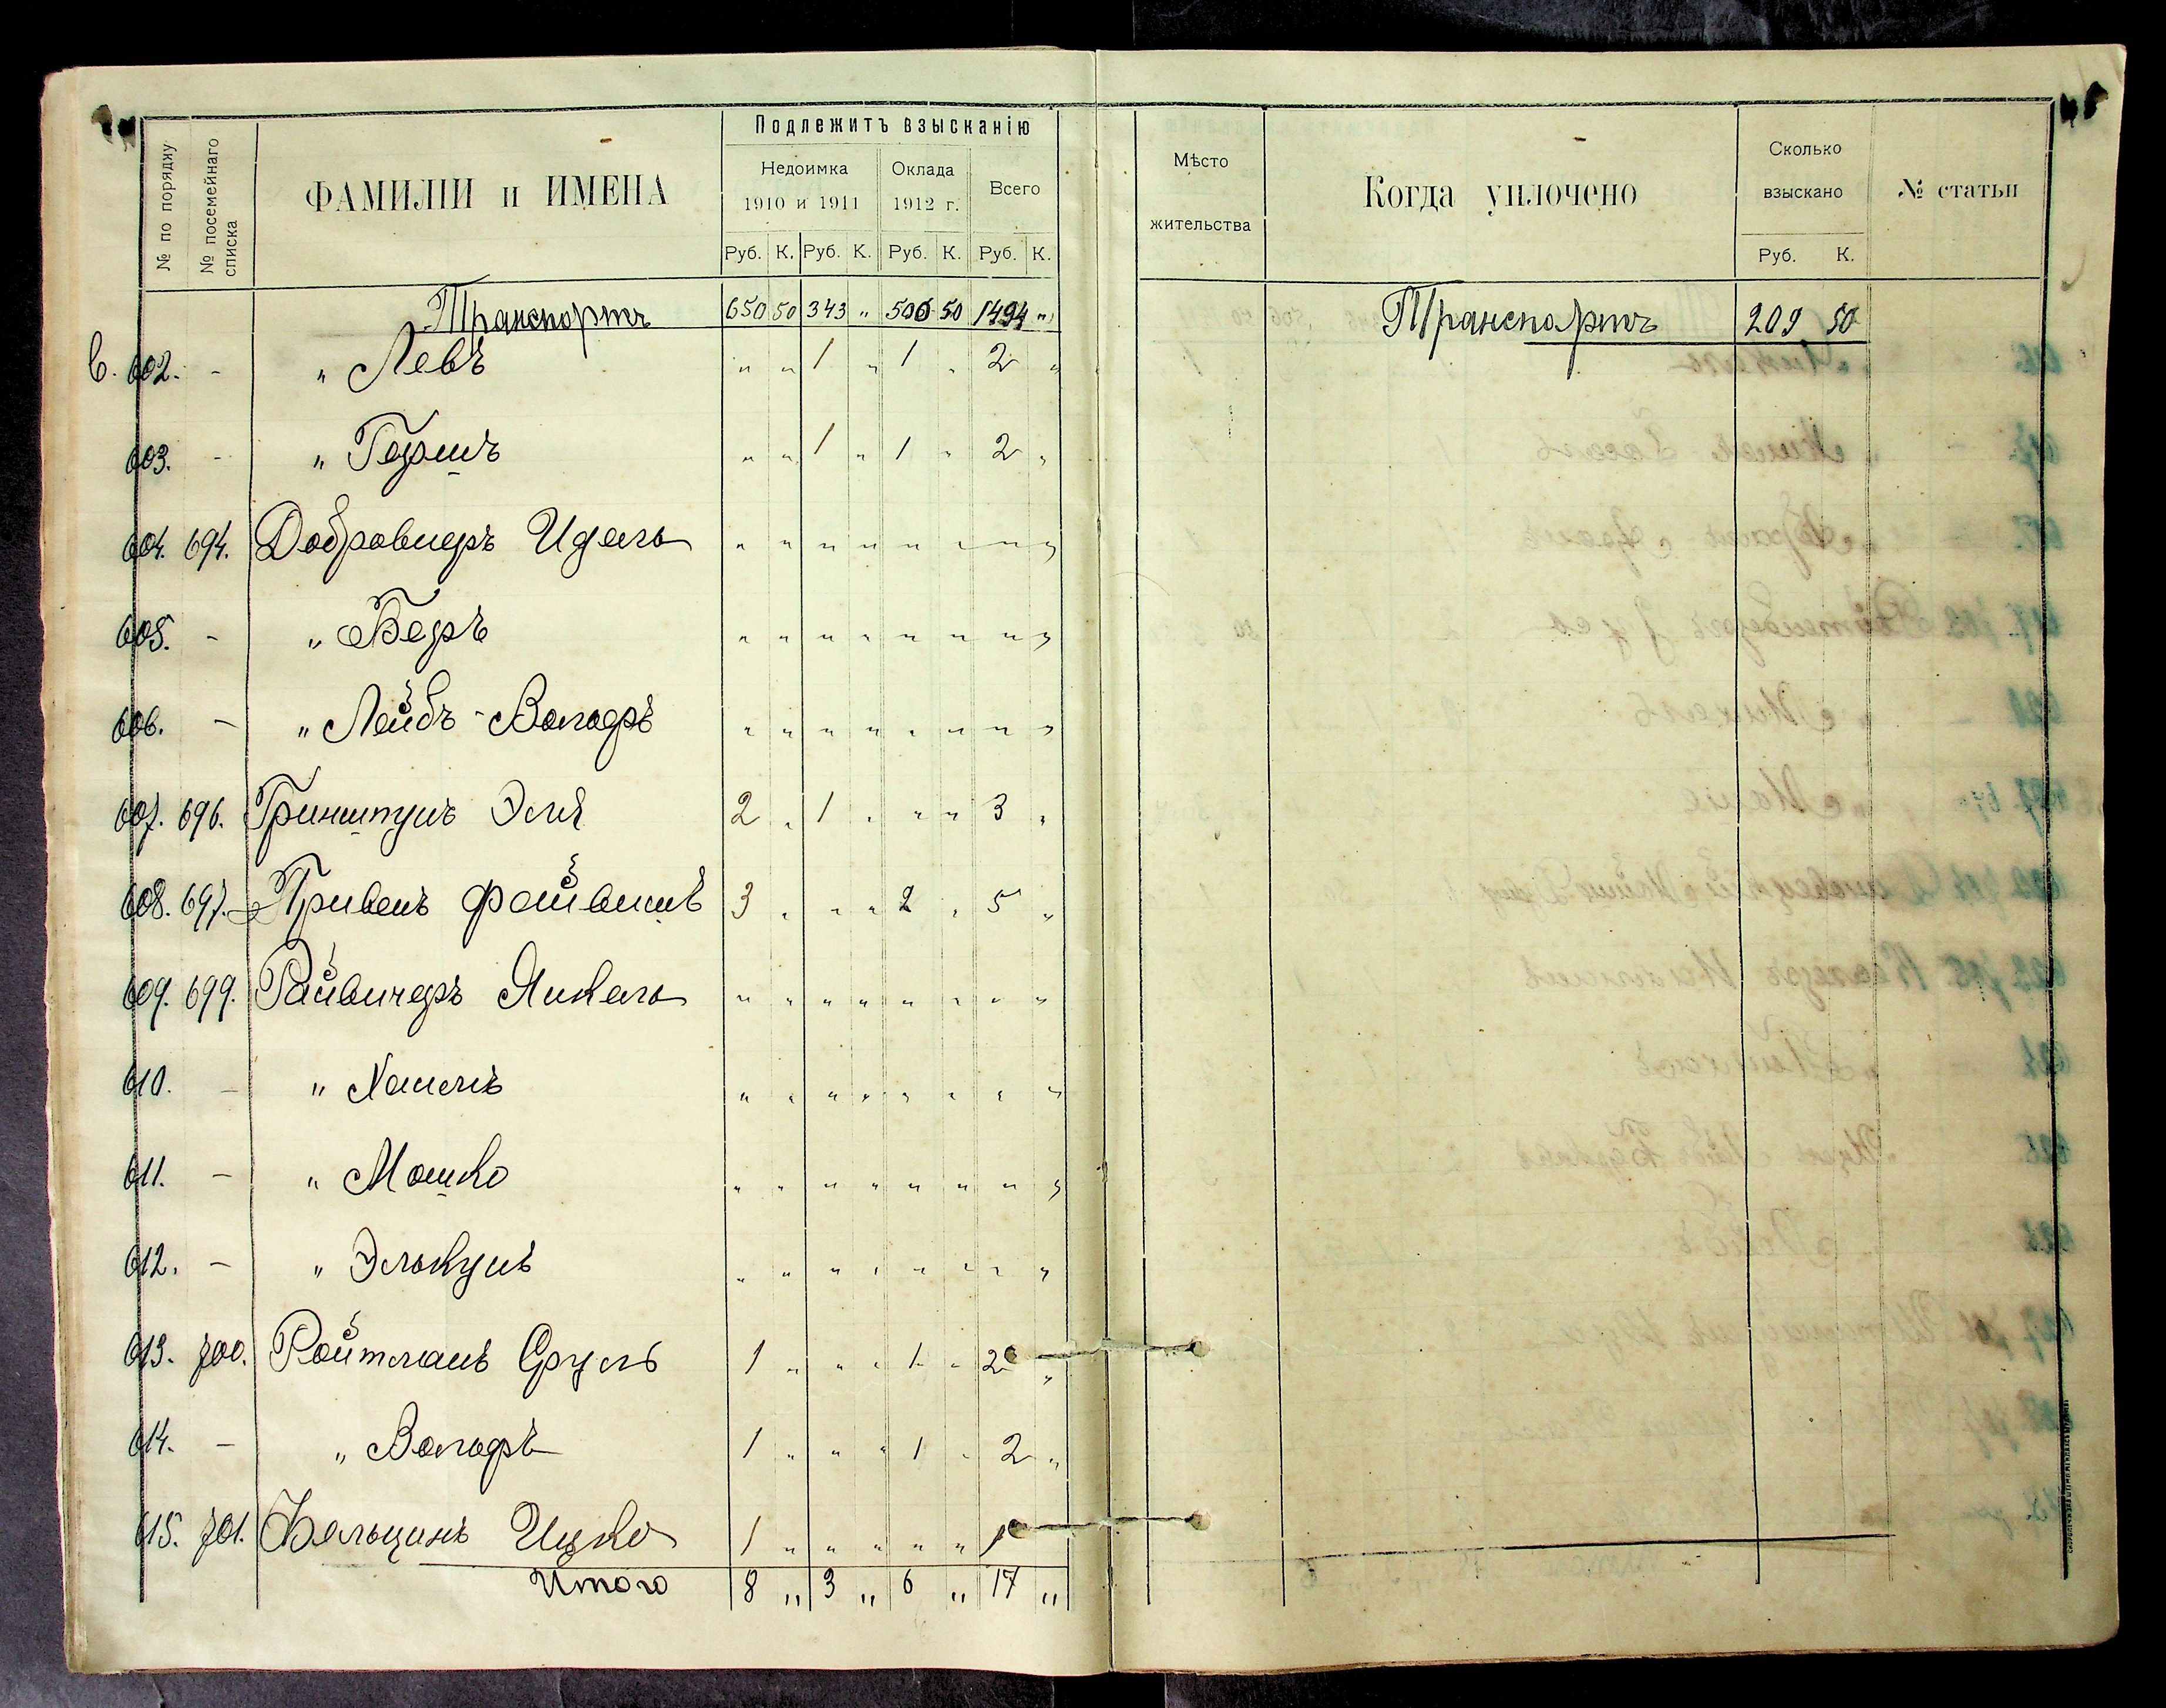 Подлежитъ взысканію
№ по порядку
№ посемейнаго списка
ФАМИЛІИ и ИМЕНА
Недоимка 1910 и 1911
Оклада 1912 г.
Всего
Руб. К. Руб. К. Руб. К. Руб. К.
Транспортъ 650 50 343 " 500 50 1494 "
в. 602. - " Левъ " " 1 " 1 " 2 "
603. - " Гершъ " " 1 " 1 " 2 "
604. 694. Добровиеръ Идель " " " " " " " "
605. - " Беръ " " " " " " " "
606. - " Лейбъ-Вольфъ " " " " " " " "
607. 696. Гринштунъ Эля 2 " 1 " " " 3 "
608. 697. Гривенъ Файвишъ 3 " " " 2 " 5 "
609. 699. Райвичеръ Янкель " " " " " " " "
610. - " Хаимъ " " " " " " " "
611. - " Мошко " " " " " " " "
612. - " Элькунъ " " " " " " " "
613. 700. Ройтманъ Сруль 1 " " " 1 " 2 "
614. - " Вольфъ 1 " " " 1 " 2 "
615. 701. Бельцинъ Ицко 1 " " " " " 1
Итого 8 " 3 " 6 " 17 "
Мѣсто жительства
Когда уплочено
Сколько взыскано
Руб. К.
№ статьи
Транспортъ 209 50